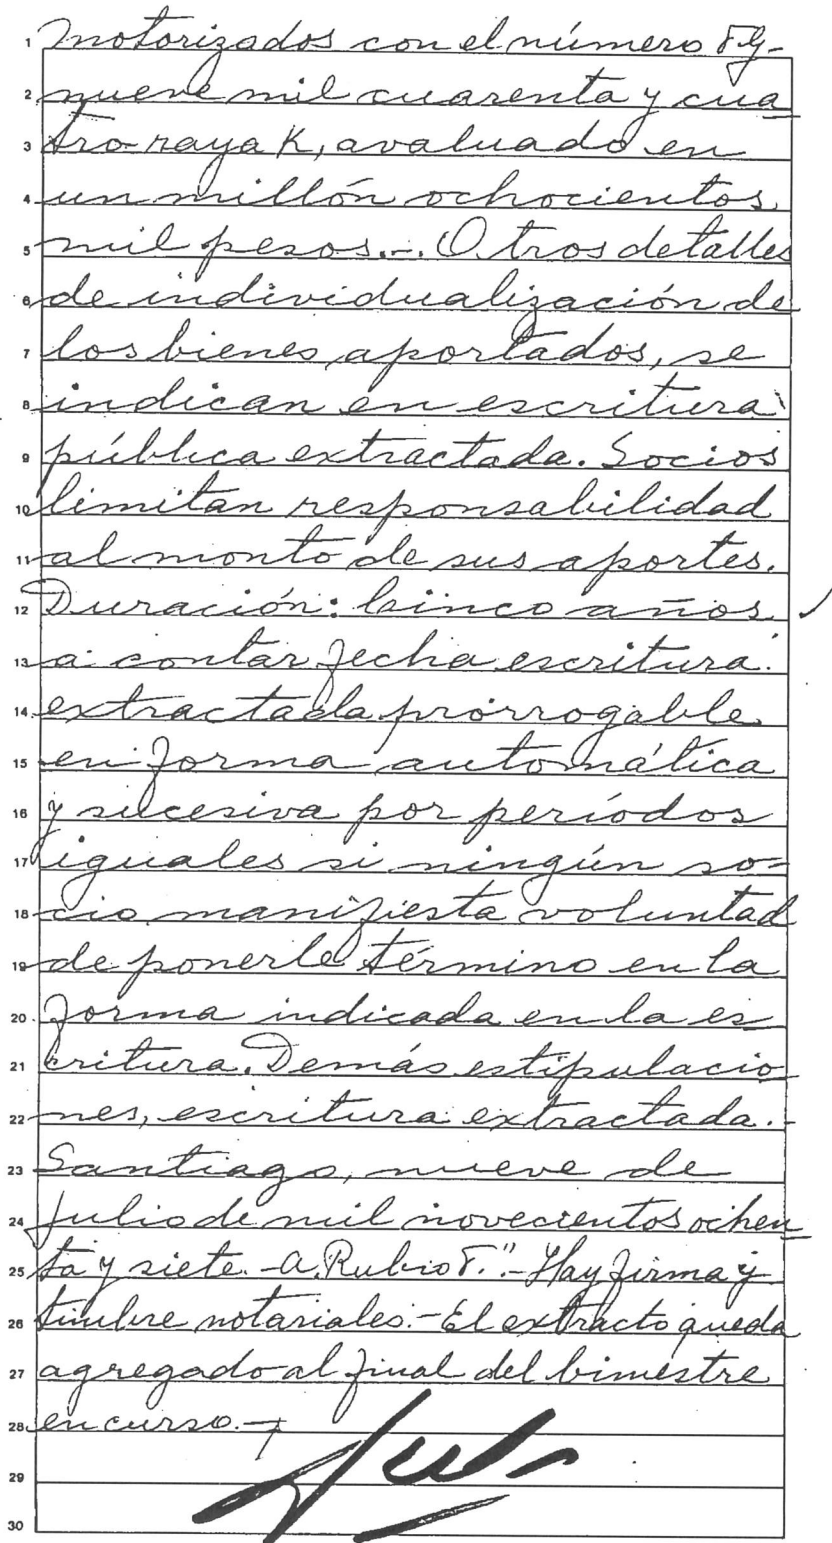 1 motorizados con el número FG-
2 nueve mil cuarenta y cua
3 tro-raya K, avaluado en
4 un millón ochocientos
5 mil pesos.-. Otros detalles
6 de individualización de
7 los bienes aportados, se
8 indican en escritura
9 pública extractada. Socios
10 limitan responsabilidad
11 al monto de sus aportes.
12 Duración: Cinco años
13 a contar fecha escritura
14 extractada prorrogable
15 en forma automática
16 y sucesiva por períodos
17 iguales si ningún so-
18 cio manifiesta voluntad
19 de ponerle término en la
20 forma indicada en la es
21 critura. Demás estipulacio
22 nes, escritura extractada.-
23 Santiago, nueve de
24 Julio de mil novecientos ochen
25 ta y siete.-A. Rubio F."-Hay firma y
26 timbre notariales.-El extracto queda
27 agregado al final del bimestre
28 en curso.-
29
30